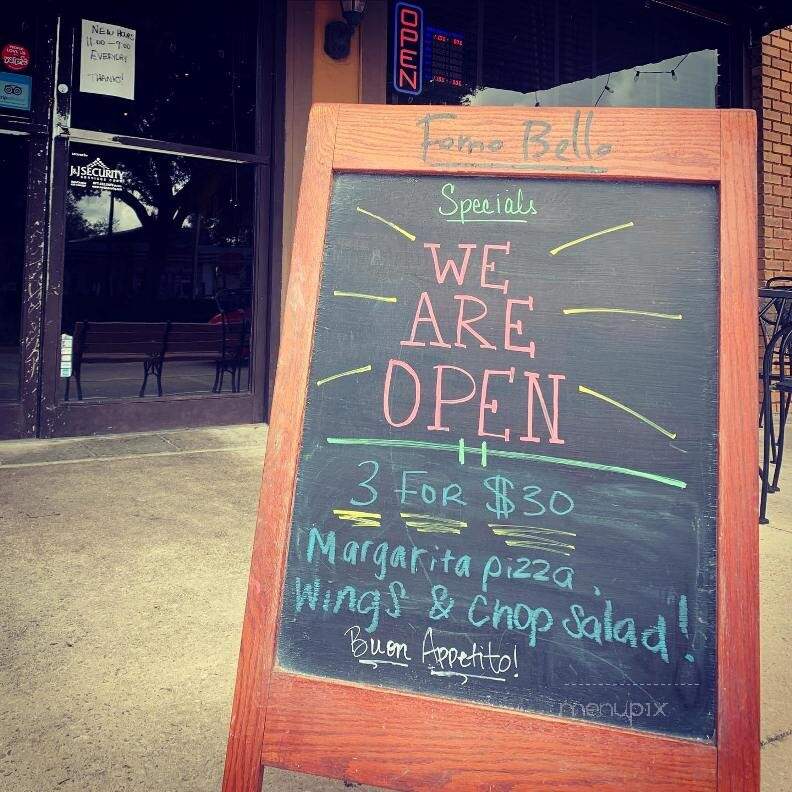 NEW HOURS
11:00 - 9:00
EVERYDAY
THANKS!
OPEN
yelp
J&J SECURITY
Forno Bello
Specials
WE
ARE
OPEN
3 FOR $30
Margarita pizza,
Wings & Chop Salad!
Buon Appetito!
menupix